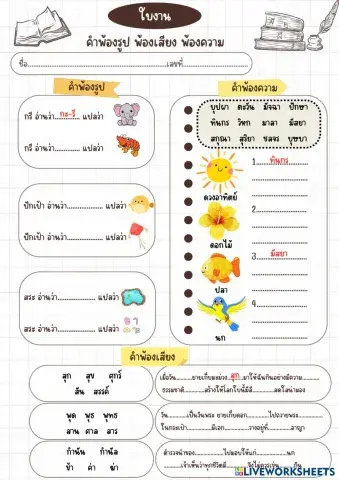 ใบงาน
คำพ้องรูป พ้องเสียง พ้องความ
ชื่อ..........เลขที่..........
คำพ้องรูป
กรี อ่านว่า....กะ-รี.... แปลว่า
กรี อ่านว่า.......... แปลว่า
ปักเป้า อ่านว่า.......... แปลว่า
ปักเป้า อ่านว่า.......... แปลว่า
สระ อ่านว่า.......... แปลว่า
สระ อ่านว่า.......... แปลว่า
คำพ้องความ
บุปผา ตะวัน มัจฉา ปักษา
ทินกร วิหก มาลา มัสยา
สกุณา สุริยา ชลจร บุษบา
1....ทินกร....
ดวงอาทิตย์
2..........
ดอกไม้
3....มัสยา....
ปลา
4..........
นก
คำพ้องเสียง
สุก สุข ศุกร์
สัน สรรค์
เมื่อวัน..........ขายเก็บมะม่วง..สุก..มาให้ฉันกินอย่างมีความ..........
ธรรมชาติ..........สร้างให้โลกใบนี้มีสี..........สดใสน่ามอง
พุด พุธ พุทธ
สาน ศาล สาร
วัน..........เป็นวันพระ ยายเก็บดอก..........ไปถวายพระ..........
ในกระเป๋า..........มีเอก..........วางอยู่ที่..........อาญา
กำนัน กำนัล
ข้า ค่า ฆ่า
ตำรวจนำของ..........ไปมอบให้แก่..........นก
LIVEWORKSHEETS